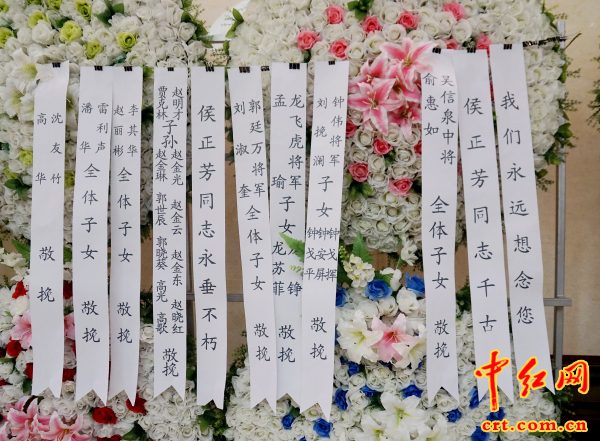 我们永远想念您
侯正芳同志千古
吴信泉中将
俞惠如
全体子女 敬挽
钟伟将军
刘挽澜
子女
钟戈挥
钟安屏
钟戈平
敬挽
龙飞虎将军
孟瑜
子女
铮
龙苏菲
敬挽
郭廷万将军
刘淑奎
全体子女 敬挽
侯正芳同志永垂不朽
赵明才
贾克林
子孙
赵金光 赵金云 赵金东 赵晓红
赵金琳 郭世辰 郭晓葵 高光 高歌
敬挽
李其华
赵丽彬
全体子女 敬挽
雷利声
潘华
全体子女 敬挽
沈友竹
高华
敬挽
中红网
crt.com.cn